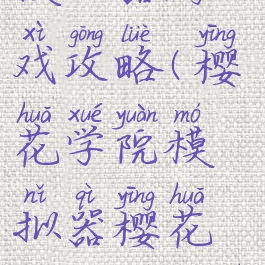 xì gōng lüè yīng
戏攻略(樱
huā xué yuàn mó
花学院模
nǐ qì yīng huā
拟器樱花